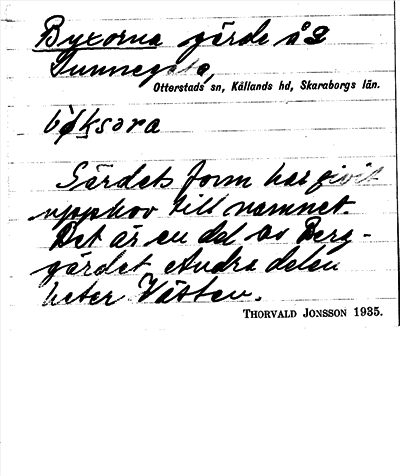 Byxorna gärde å S
Sunnegata,
Otterstads sn, Kållands hd, Skaraborgs län.
Gärdets form har givit
upphov till namnet.
Det är en del av Berg-
gärdet Andra delen
heter Västen.
THORVALD JONSSON 1935.